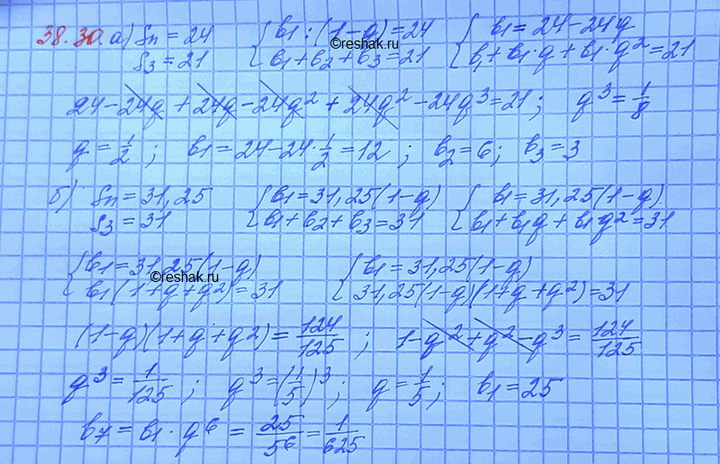 38.30. а) Sn = 24 { b1 : (1-q) = 24 { b1 = 24-24q
S3 = 21 b1+b2+b3 = 21 b1+b1·q+b1·q² = 21
©reshak.ru
24-24q+24q-24q²+24q²-24q³=21; q³=1/8
q=1/2; b1=24-24·1/2=12; b2=6; b3=3
б) Sn=31,25 { b1=31,25(1-q) { b1=31,25(1-q)
S3=31 b1+b2+b3=31 b1+b1q+b1q²=31
{ b1=31,25(1-q) { b1=31,25(1-q)
©reshak.ru
b1(1+q+q²)=31 31,25(1-q)(1+q+q²)=31
(1-q)(1+q+q²)=124/125; 1-q²+q²-q³=124/125
q³=1/125; q³=(1/5)³; q=1/5; b1=25
b7=b1·q⁶=25/5⁶=1/625